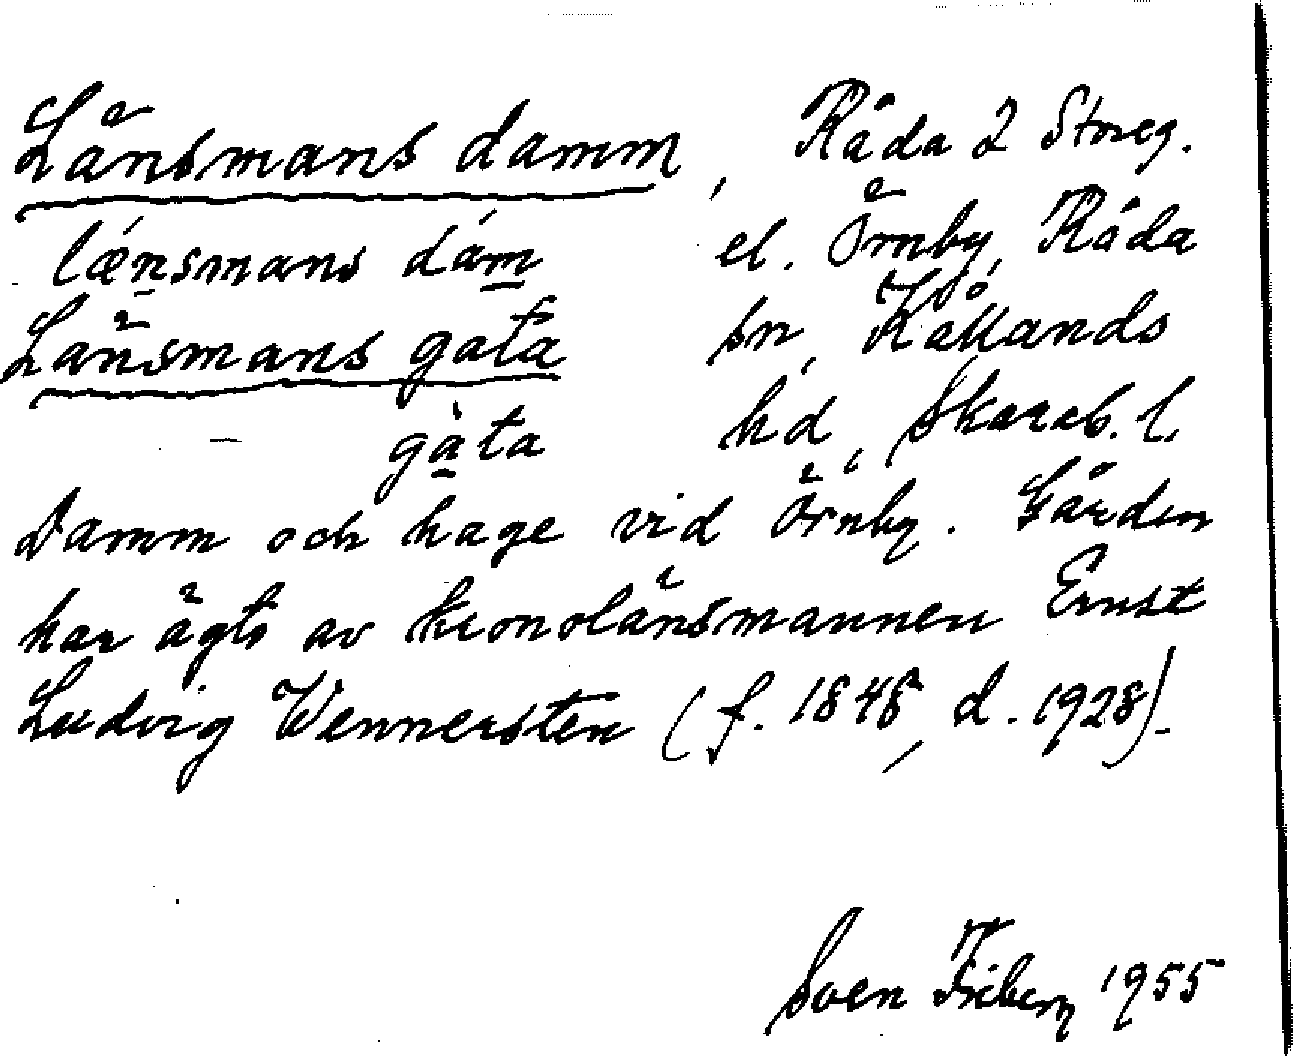 Länsmans damm, Råda 2 Storeg.
lǽnsmans dám el. Örnby, Råda
Länsmans gata sn, Kållands
— gàta hd, Skarab. l.
Damm och hage vid Örnby. Gården
har ägts av kronolänsmannen Ernst
Ludvig Wennersten (f. 1848, d. 1928).
Sven Friberg 1955